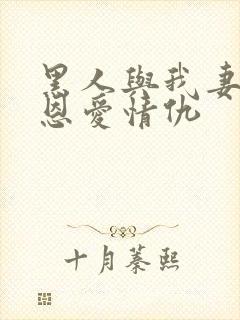 黑人與我妻
恩愛情仇
十月蓁熙